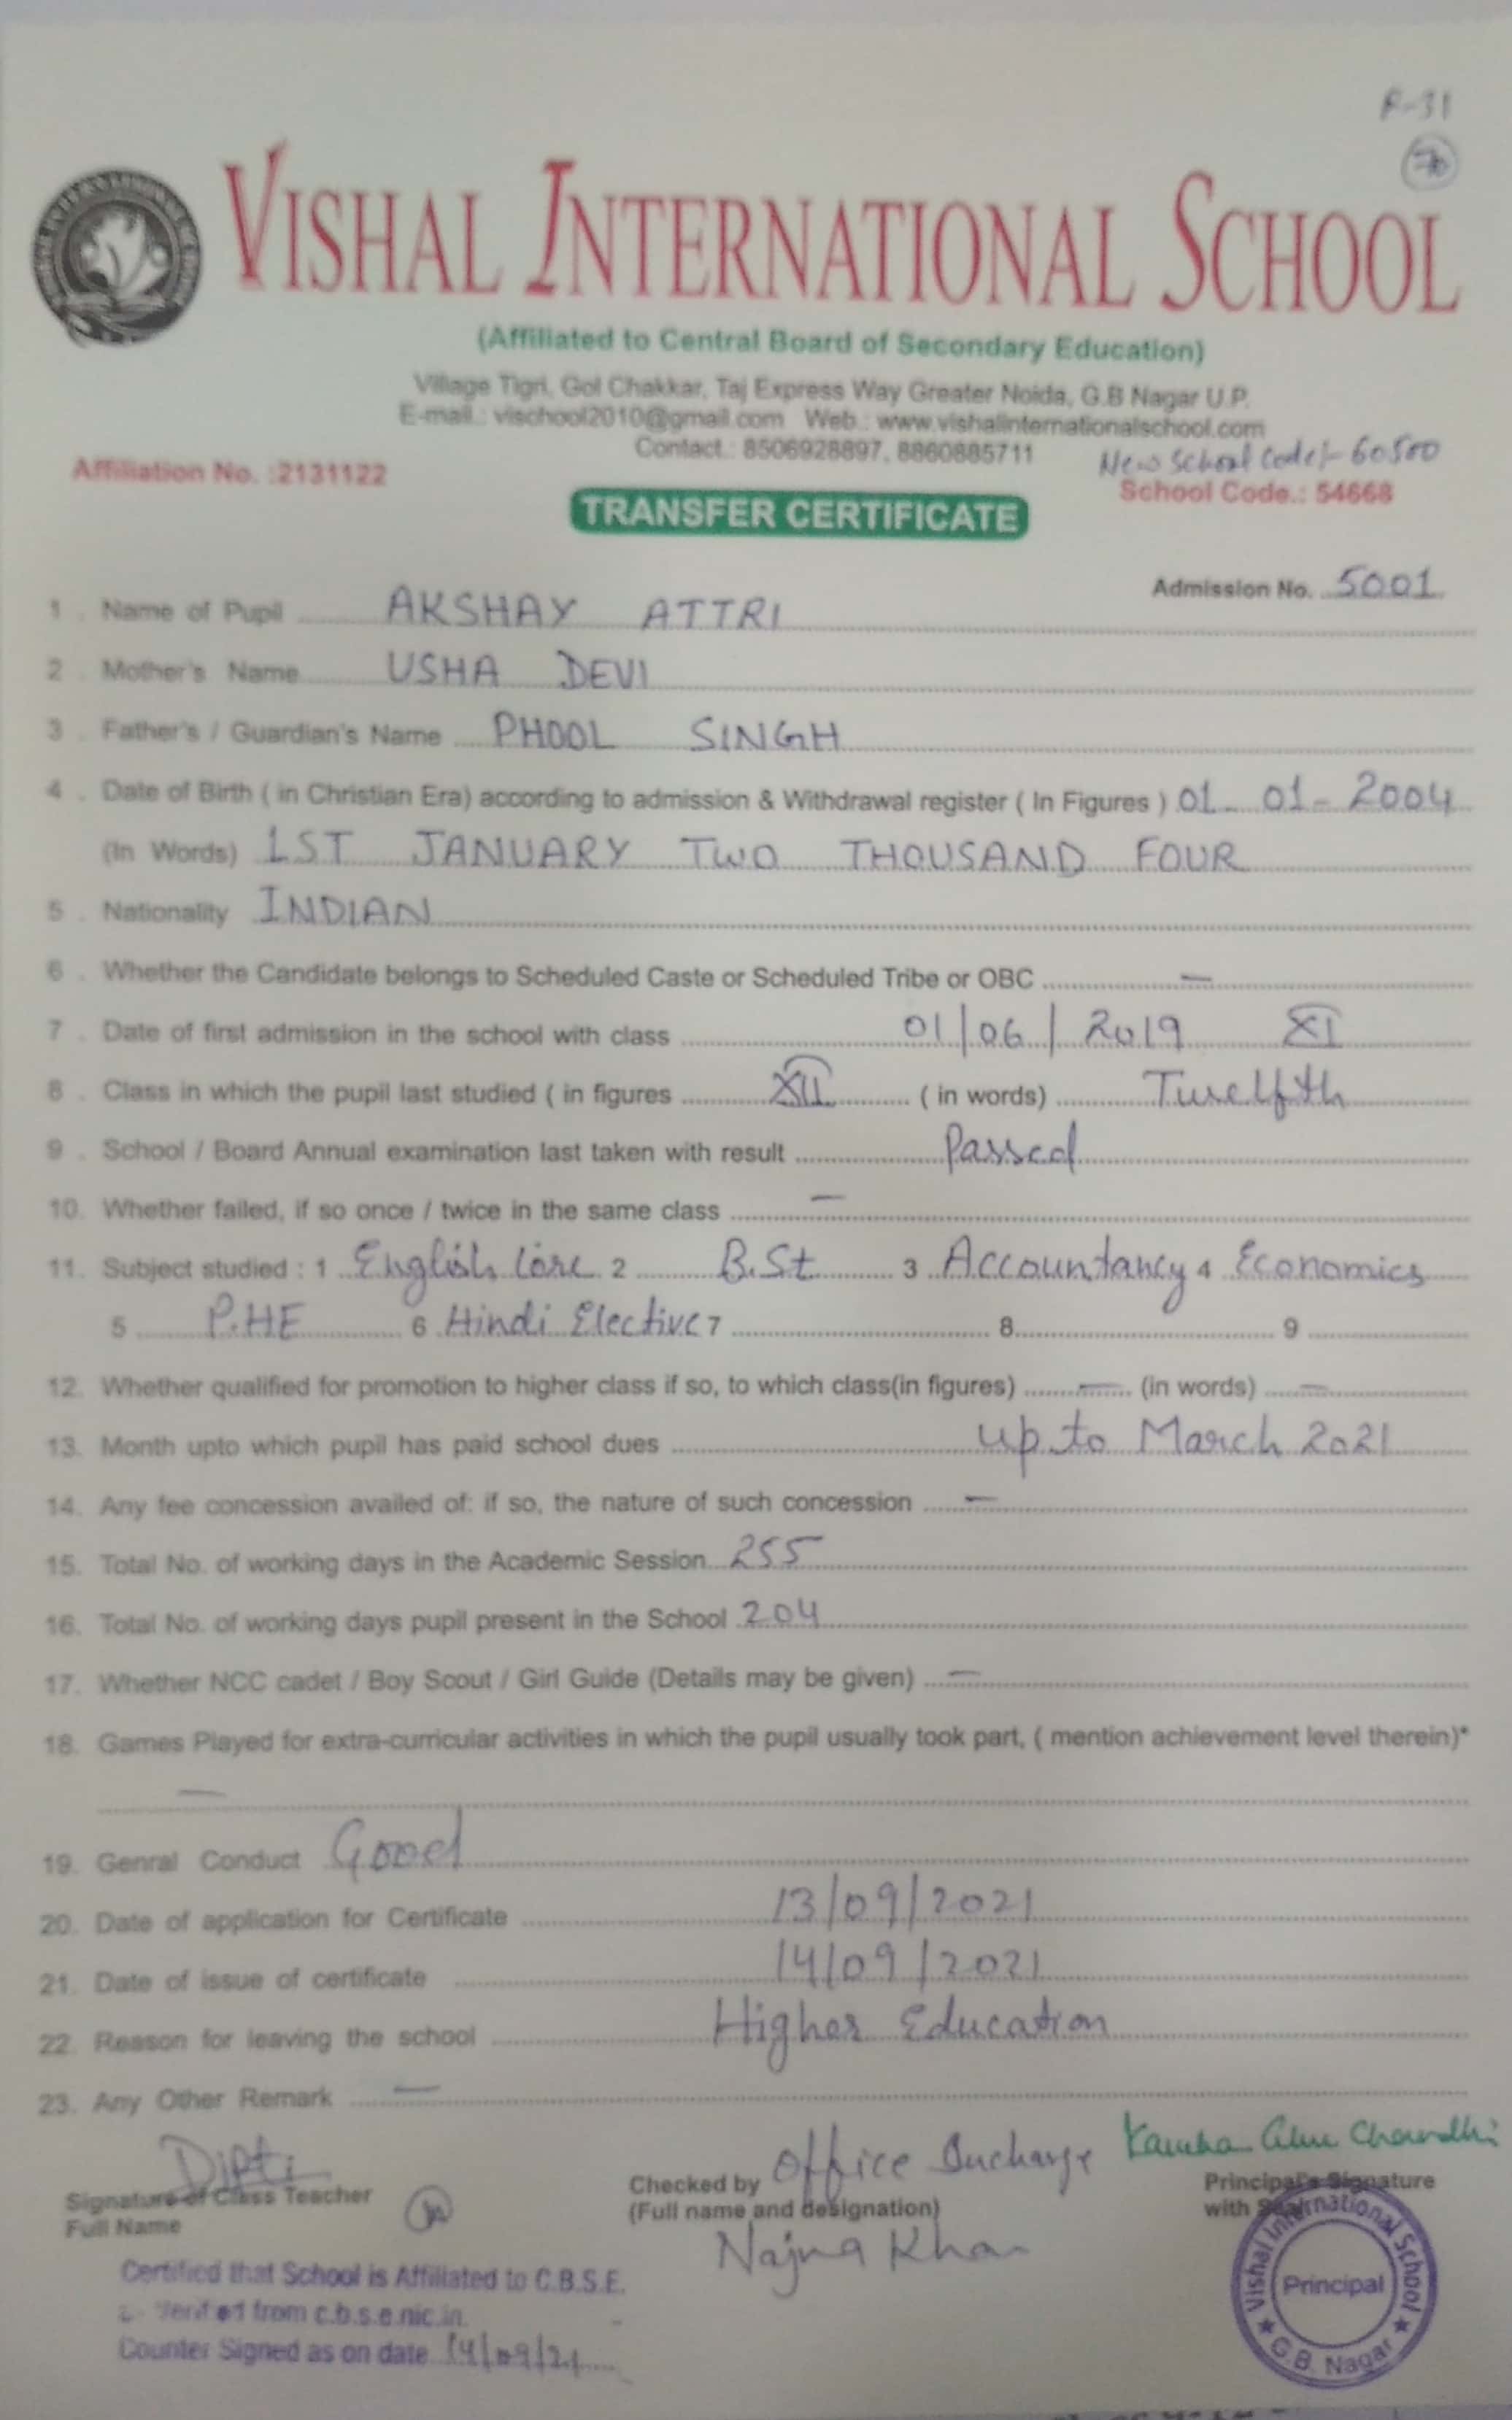 R-31
VISHAL INTERNATIONAL SCHOOL
(Affiliated to Central Board of Secondary Education)
Village Tigri, Gol Chakkar, Taj Express Way Greater Noida, G.B Nagar U.P.
E-mail.: vischool2010@gmail.com Web.: www.vishalinternationalschool.com
Contact.: 8506928897, 8860885711
New School Code:- 60500
Affiliation No. :2131122
School Code.: 54668
TRANSFER CERTIFICATE
Admission No. 5001
1 . Name of Pupil AKSHAY ATTRI
2 . Mother's Name USHA DEVI
3 . Father's / Guardian's Name PHOOL SINGH
4 . Date of Birth ( in Christian Era) according to admission & Withdrawal register ( In Figures ) 01 - 01 - 2004
(In Words) 1ST JANUARY TWO THOUSAND FOUR
5 . Nationality INDIAN
6 . Whether the Candidate belongs to Scheduled Caste or Scheduled Tribe or OBC —
7 . Date of first admission in the school with class 01/06/2019 XI
8 . Class in which the pupil last studied ( in figures XII ( in words) Twelfth
9 . School / Board Annual examination last taken with result Passed
10. Whether failed, if so once / twice in the same class —
11. Subject studied : 1 English Core 2 B.St 3 Accountancy 4 Economics
5 P.HE 6 Hindi Elective 7 8 9
12. Whether qualified for promotion to higher class if so, to which class(in figures) — (in words) —
13. Month upto which pupil has paid school dues up to March 2021
14. Any fee concession availed of: if so, the nature of such concession —
15. Total No. of working days in the Academic Session 255
16. Total No. of working days pupil present in the School 204
17. Whether NCC cadet / Boy Scout / Girl Guide (Details may be given) —
18. Games Played for extra-curricular activities in which the pupil usually took part, ( mention achievement level therein)*
—
19. Genral Conduct Good
20. Date of application for Certificate 13/09/2021
21. Date of issue of certificate 14/09/2021
22. Reason for leaving the school Higher Education
23. Any Other Remark —
Dipti
Signature of Class Teacher
Full Name
Checked by Office Incharge
(Full name and designation)
Najma Khan
Principal's Signature
with Seal
Vishal International School
Principal
G.B. Nagar
Certified that School is Affiliated to C.B.S.E.
& Verified from c.b.s.e.nic.in.
Counter Signed as on date 14/09/21